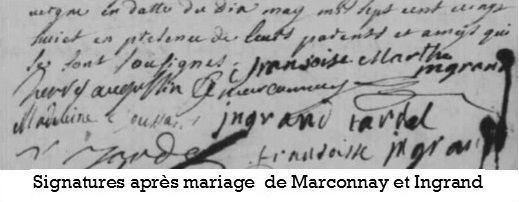 vergne en datte du dix may mil sept cent vingt
huict en presence de leurs parents et amys qui
se sont sousignes. françoise Marthe
ingrand
henry augustin de marconnay
Madeleine ingrand tardel
françoisse ingrand
Signatures après mariage de Marconnay et Ingrand